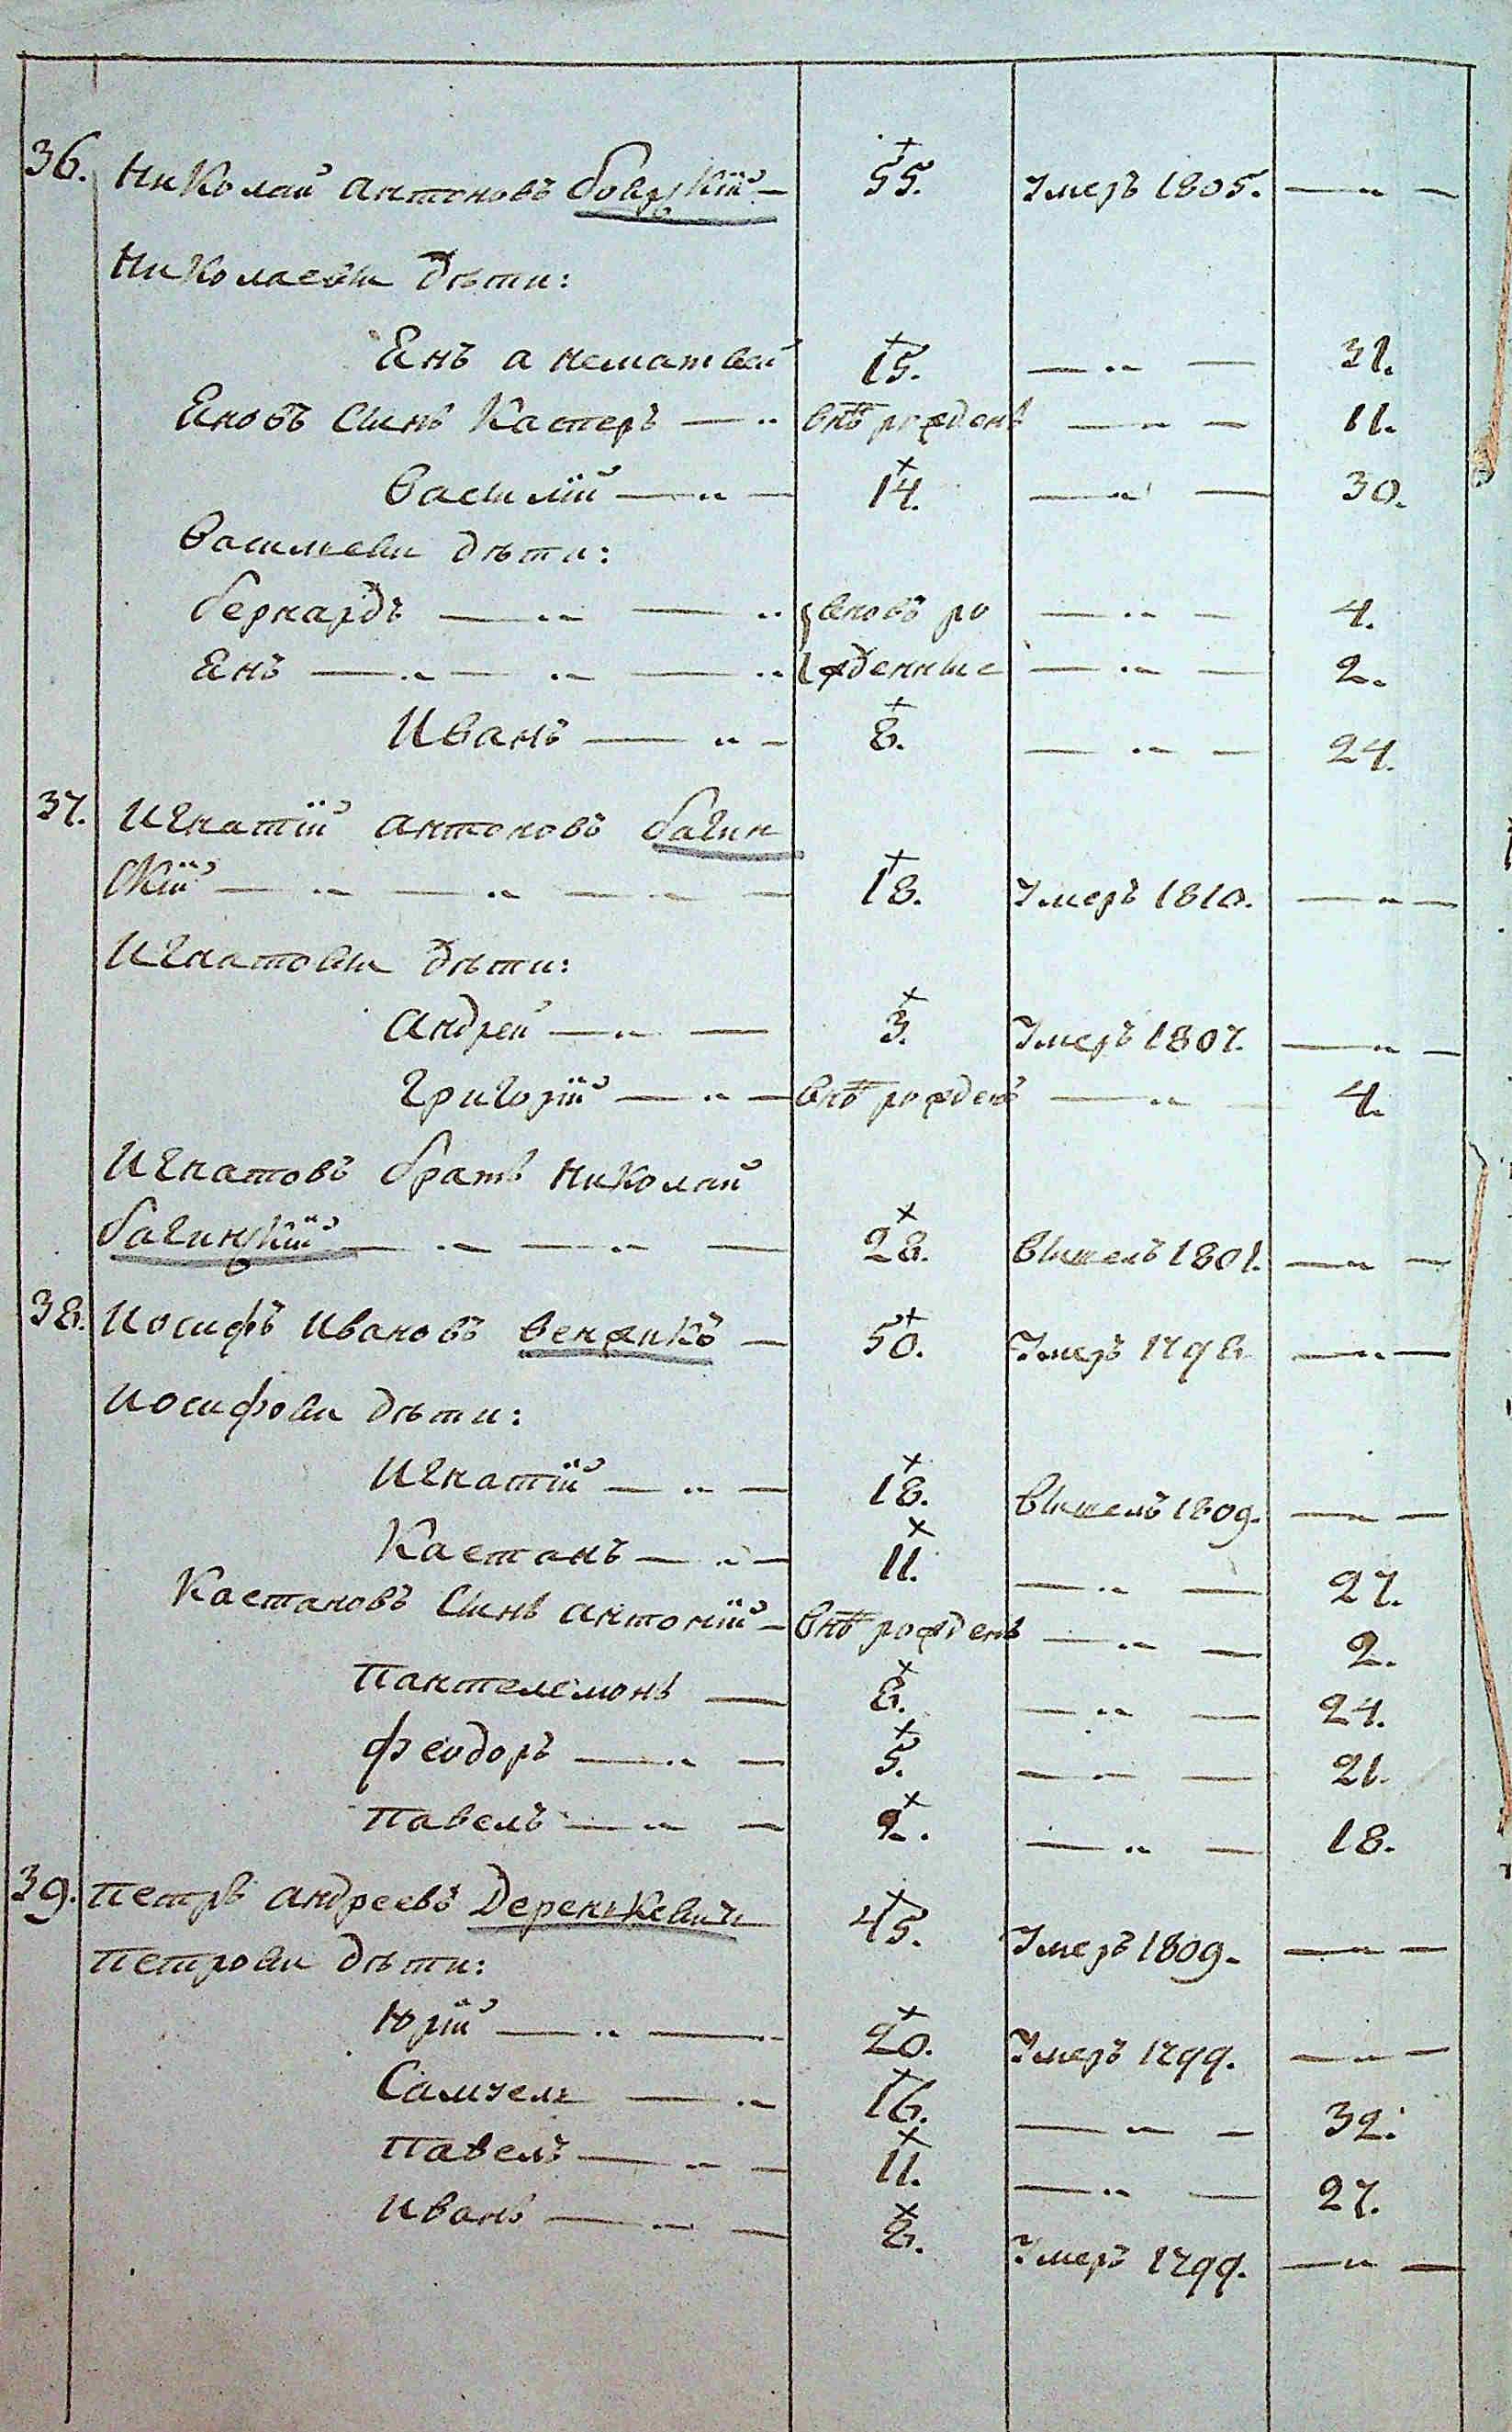 36. Николай Антоновъ Боярскій — 55. Умеръ 1805. — „ —
Николаевы дѣти:
Янъ а нематвей 15. — „ — 31.
Яновъ Сынъ Касперъ — „ внѣ рожденъ — „ — 11.
Василій — „ — 14. — „ — 30.
Васильевы дѣти:
Бернардъ — „ — „ вновь ро — „ — 4.
Янъ — „ — „ — „ жденные — „ — 2.
Иванъ — „ — 8. — „ — 24.
37. Игнатій Антоновъ Багин
скій — „ — „ — — 18. Умеръ 1810. — „ —
Игнатовы дѣти:
Андрей — „ — 3. Умеръ 1807. — „ —
Григорій — „ — внѣ рожденъ — „ — 4.
Игнатовъ братъ Николай
Багинскій — „ — „ — 28. Вышелъ 1801. — „ —
38. Иосифъ Ивановъ Венжикъ — 50. Умеръ 1798 — „ —
Иосифовы дѣти:
Игнатій — „ — 18. Вышелъ 1809. — „ —
Каетанъ — „ — 11. — „ — 27.
Каетановъ Сынъ Антоній — внѣ рожденъ — „ — 2.
Пантелемонъ — 8. — „ — 24.
Феодоръ — „ — 5. — „ — 21.
Павелъ — „ — 2. — „ — 18.
39. Петръ Андреевъ Деренкевичъ 45. Умеръ 1809. — „ —
Петровы дѣти:
Юрій — „ — 20. Умеръ 1799. — „ —
Самуель — „ 16. — „ — 32.
Павелъ — „ — 11. — „ — 27.
Иванъ — „ — 8. Умеръ 1799. — „ —